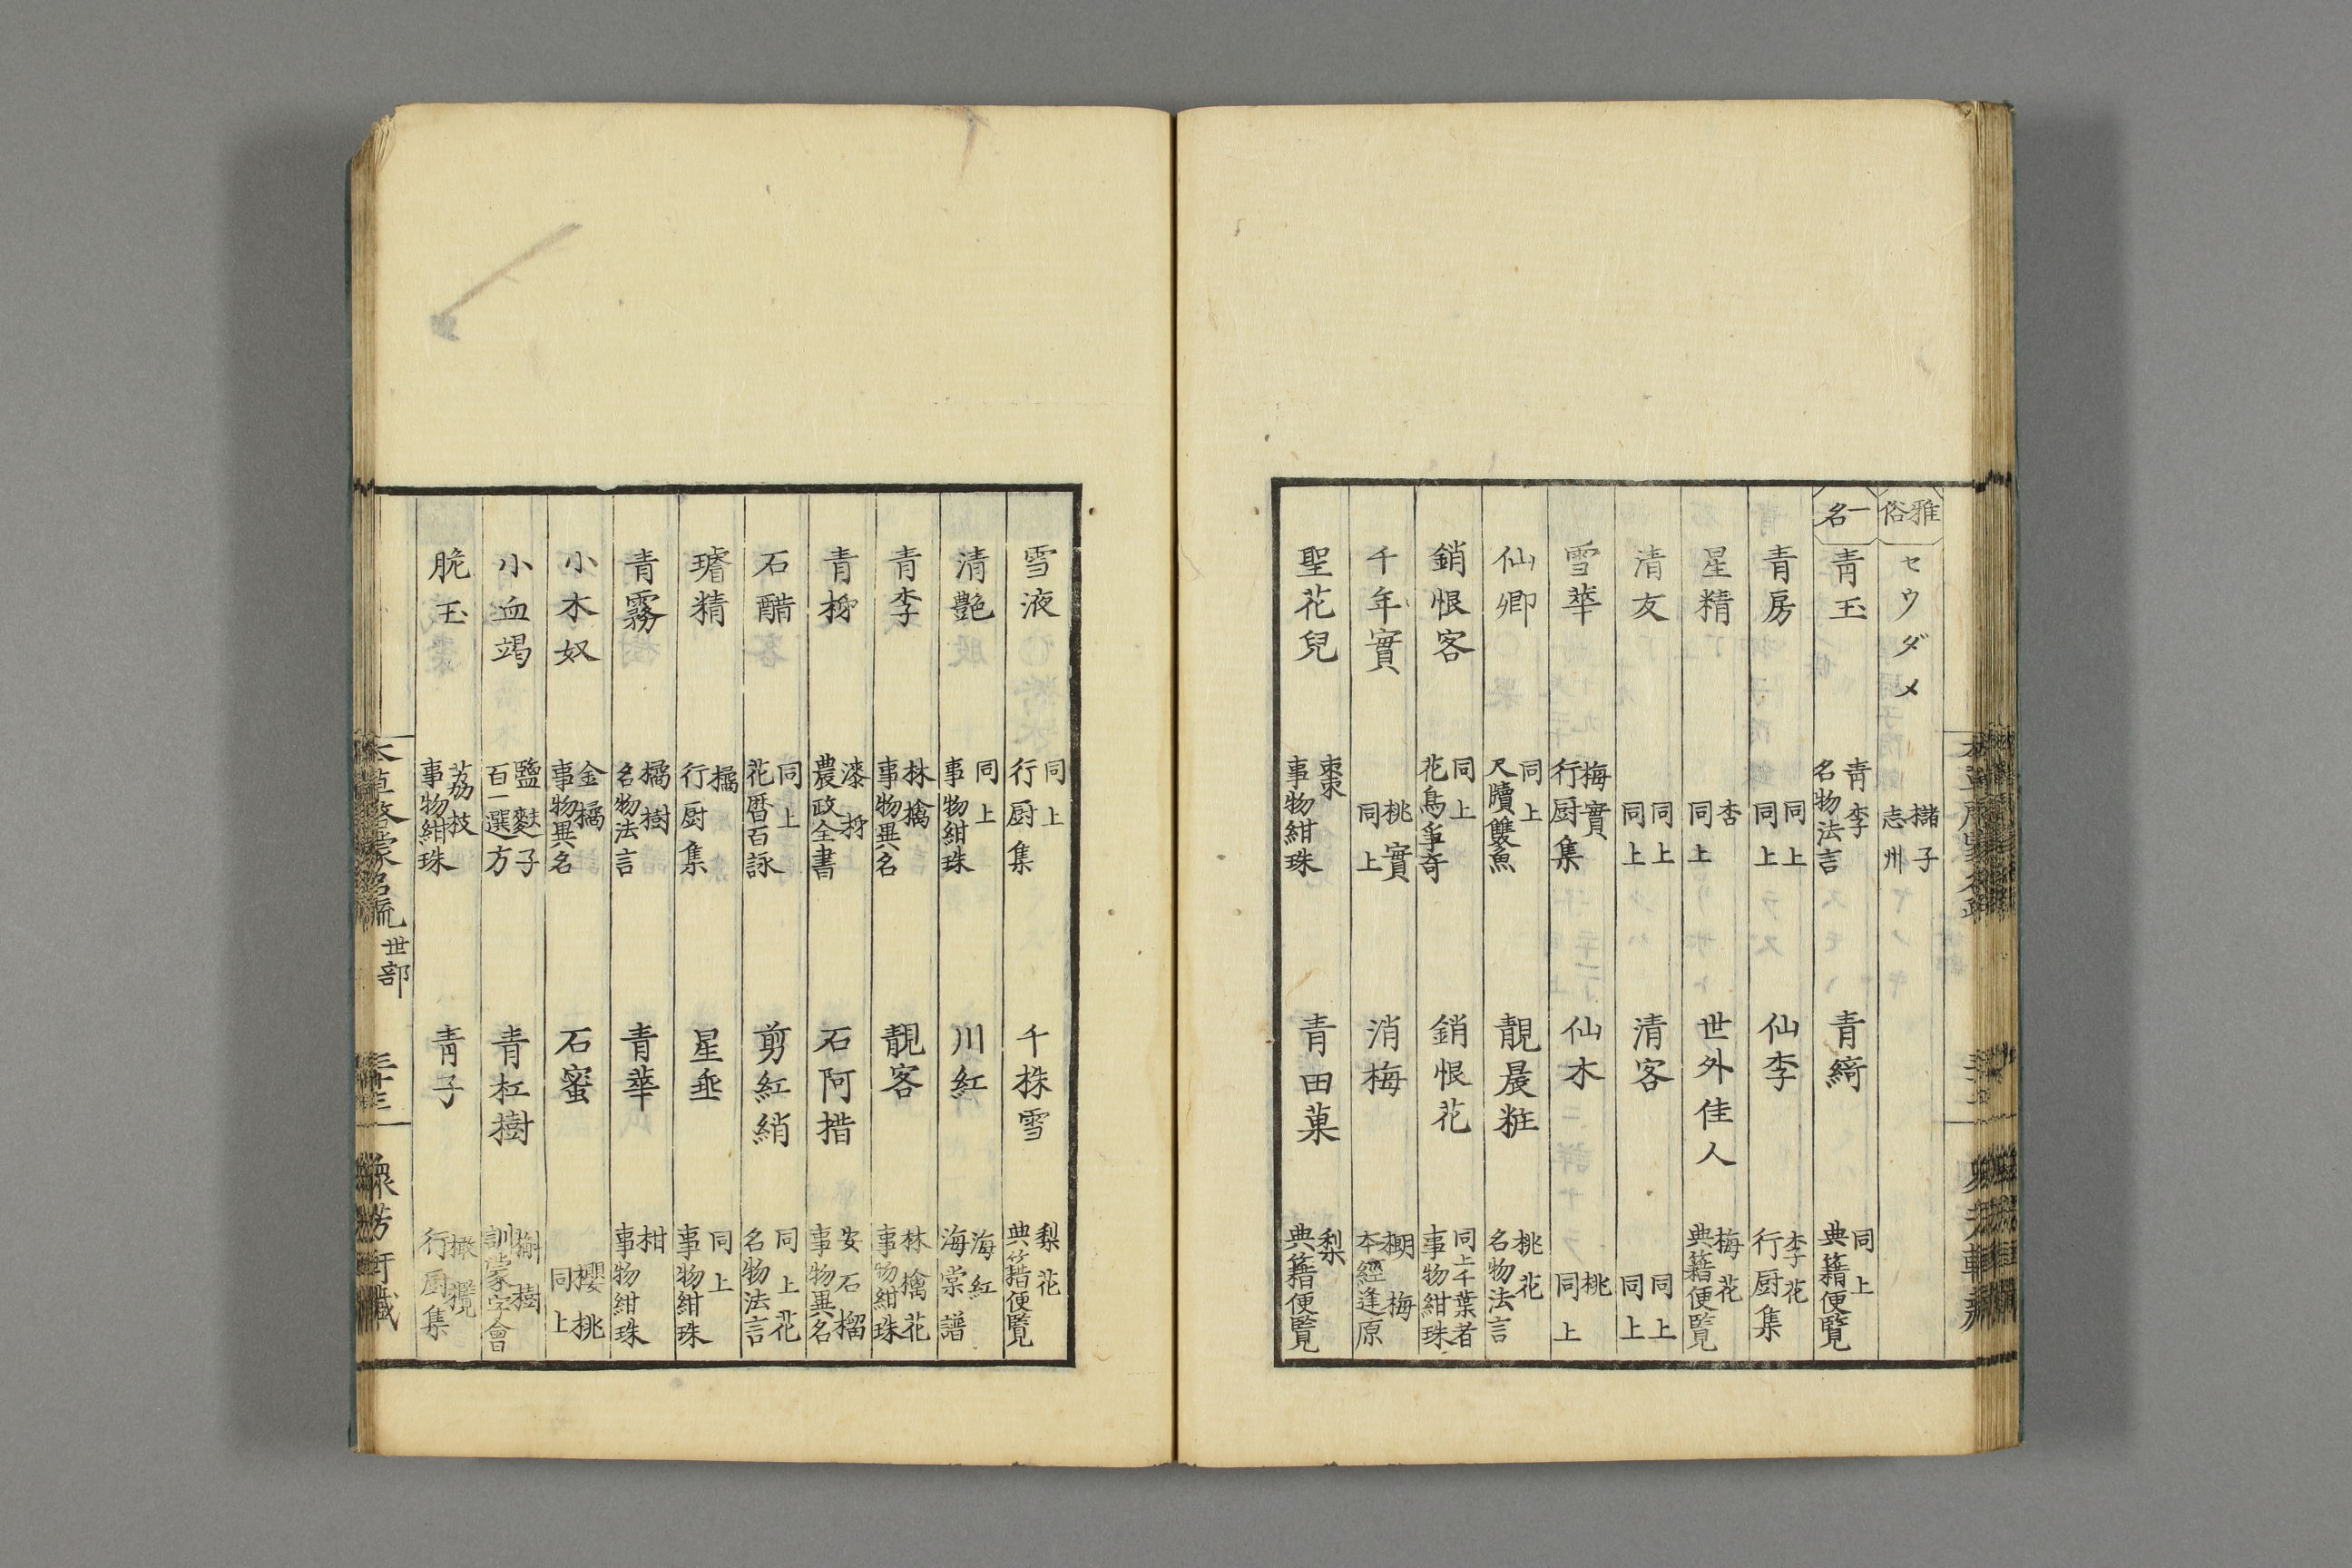 雅俗 セウダメ 櫧子 志州
一名 青玉 青李 名物法言 青綺 同上 典籍便覧
青房 同上 同上 仙李 李花 行厨集
星精 杏 同上 世外佳人 梅花 典籍便覧
清友 同上 同上 清客 同上 同上
雪華 梅實 行厨集 仙木 桃 同上
仙卿 同上 尺牘雙魚 靚晨粧 桃花 名物法言
銷恨客 同上 花鳥爭奇 銷恨花 同上千葉者 事物紺珠
千年實 桃實 同上 消梅 棚梅 本經逢原
聖花兒 棗 事物紺珠 青田菓 梨 典籍便覧
雪液 同上 行厨集 千株雪 梨花 典籍便覧
清艶 同上 事物紺珠 川紅 海紅 海棠譜
青李 林檎 事物異名 靚客 林檎花 事物紺珠
青柹 漆柹 農政全書 石阿措 安石榴 事物異名
石醋 同上 花暦百詠 剪紅綃 同上花 名物法言
璿精 橘 行厨集 星垂 同上 事物紺珠
青霧 橘樹 名物法言 青華 柑 事物紺珠
小木奴 金橘 事物異名 石蜜 櫻桃 同上
小血竭 鹽麩子 百一選方 青杠樹 槲樹 訓蒙字會
脆玉 茘枝 事物紺珠 青子 橄欖 行厨集
本草啓蒙名疏 世部 三十三 衆芳軒藏